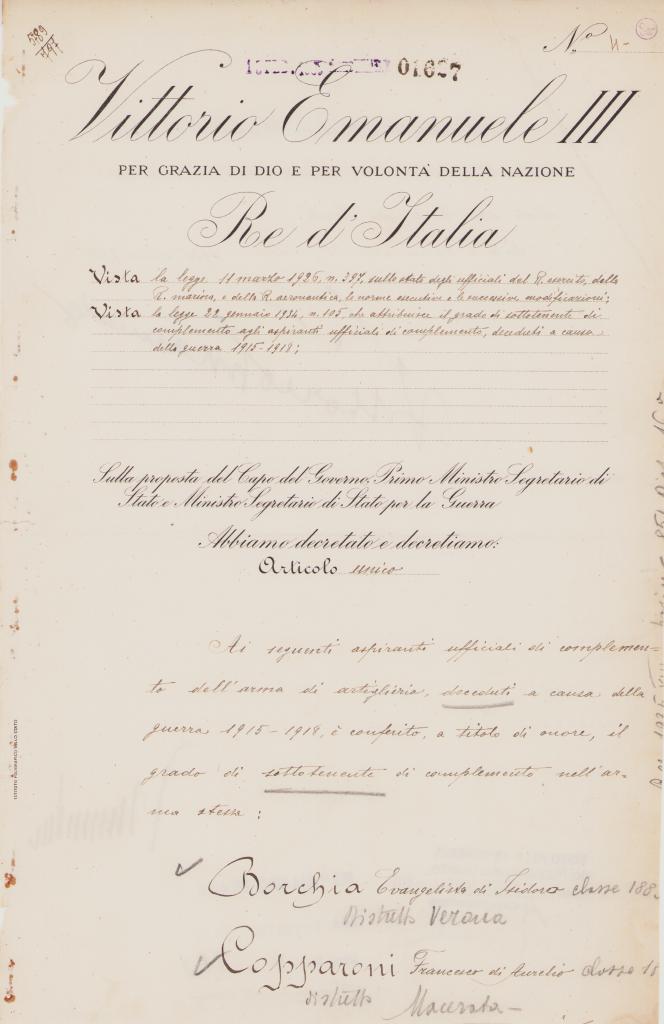 589
N.º 4-
01627
Vittorio Emanuele III
PER GRAZIA DI DIO E PER VOLONTA' DELLA NAZIONE
Re d'Italia
Vista la legge 11 marzo 1926, n. 397, sullo stato degli ufficiali del R. esercito, della
R. marina, e della R. aeronautica, le norme esecutive e le successive modificazioni;
Vista la legge 22 gennaio 1934, n. 105, che attribuisce il grado di sottotenente di
complemento agli aspiranti ufficiali di complemento, deceduti a causa
della guerra 1915-1918;
Sulla proposta del Capo del Governo, Primo Ministro Segretario di
Stato e Ministro Segretario di Stato per la Guerra
Abbiamo decretato e decretiamo:
Articolo unico
Ai seguenti aspiranti ufficiali di complemen-
to dell'arma di artiglieria, deceduti a causa della
guerra 1915-1918, è conferito, a titolo di onore, il
grado di sottotenente di complemento nell'ar-
ma stessa:
Borchia Evangelista di Isidoro classe 188
Distretto Verona
Copparoni Francesco di Aurelio classe 18
distretto Macerata-